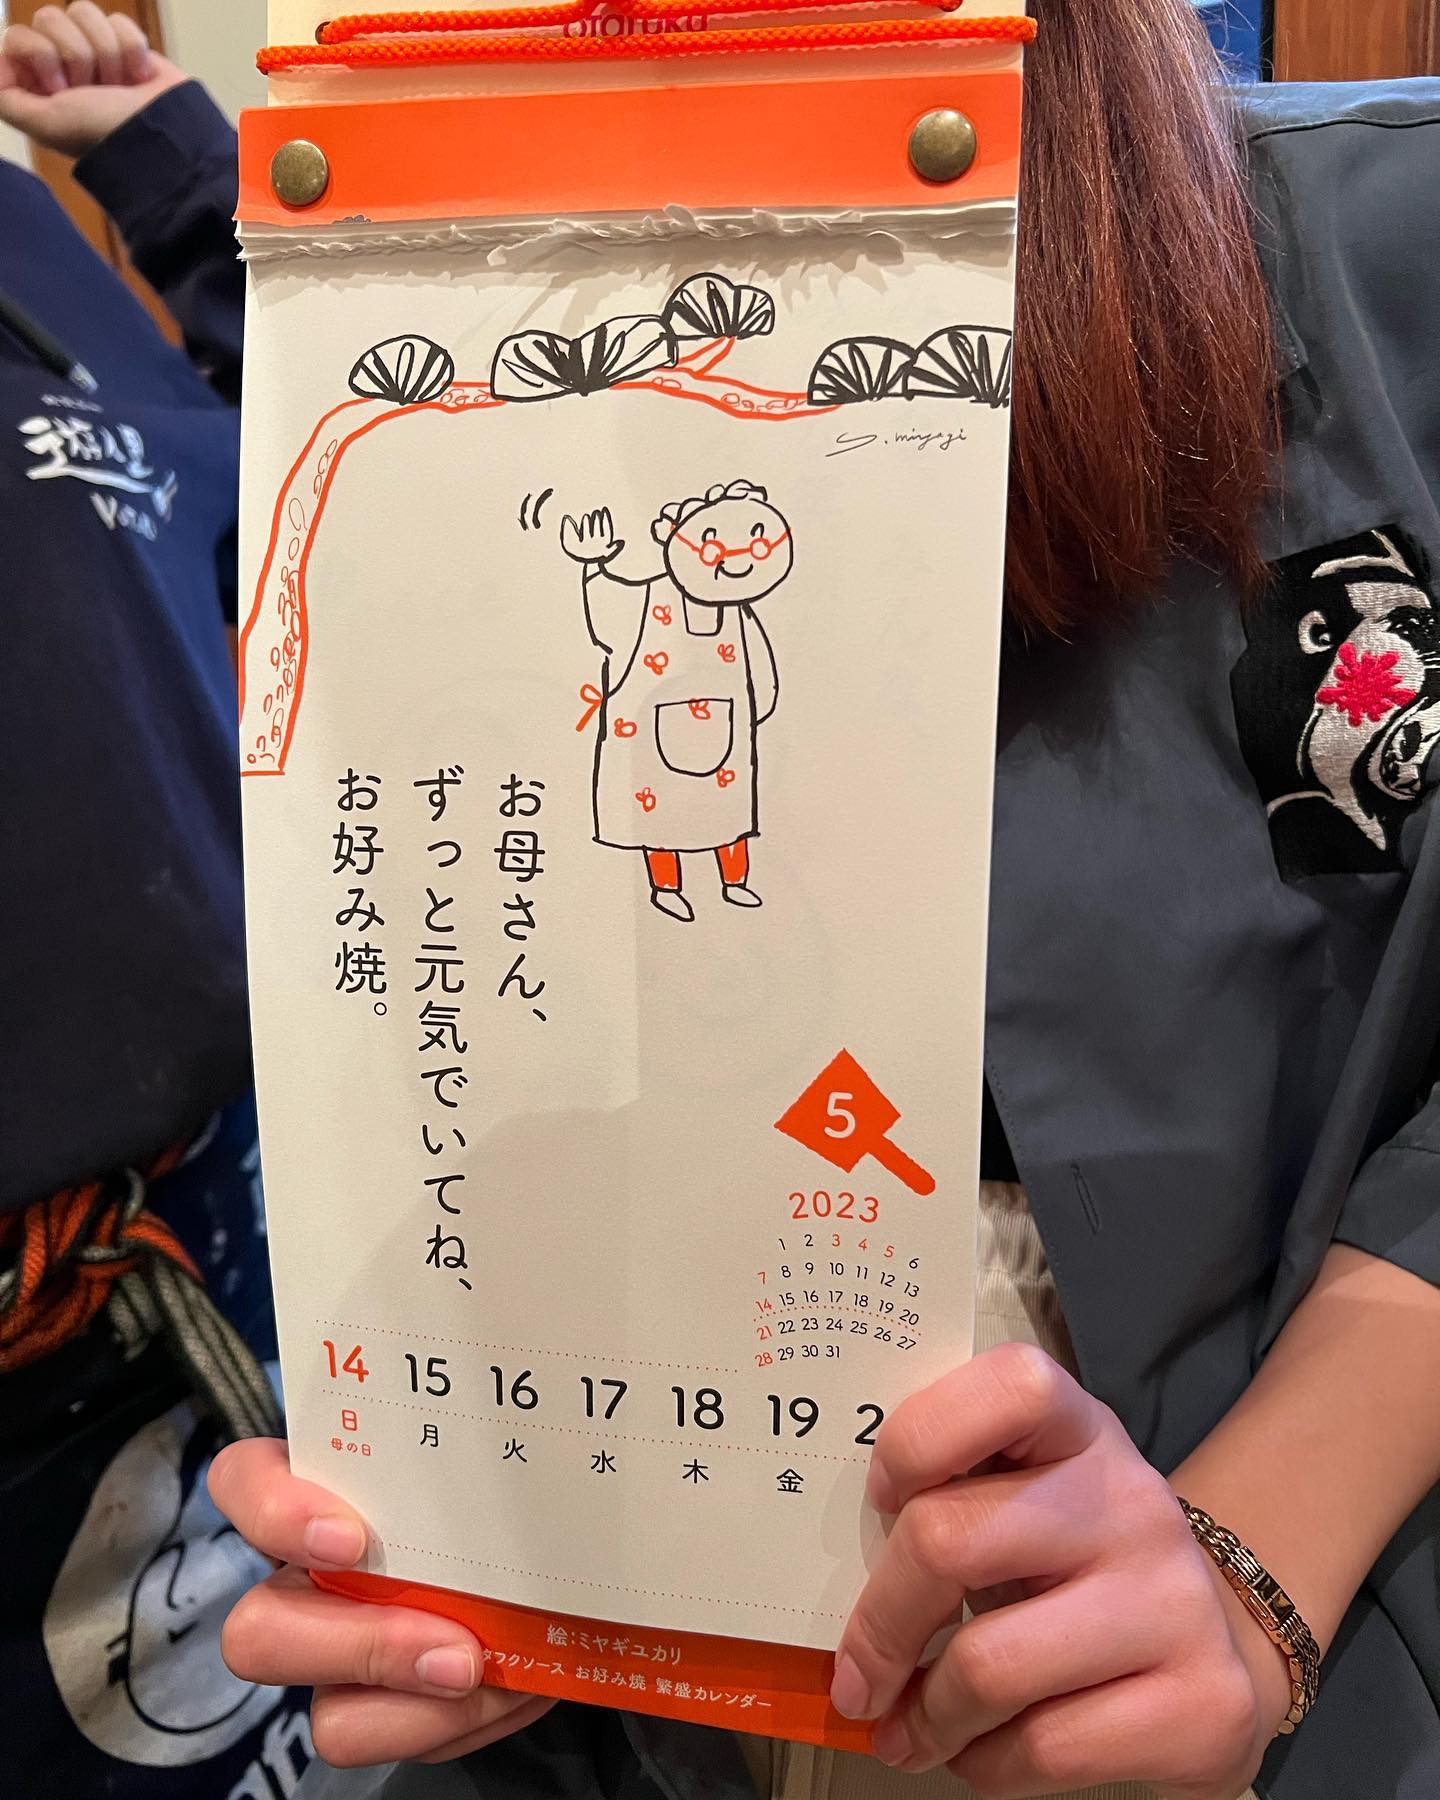 otafuku
S. miyagi
お母さん、
ずっと元気でいてね、
お好み焼。
5
2023
1 2 3 4 5 6
7 8 9 10 11 12 13
14 15 16 17 18 19 20
21 22 23 24 25 26 27
28 29 30 31
14 15 16 17 18 19 2
日 月 火 水 木 金
母の日
絵:ミヤギユカリ
タフクソース お好み焼 繁盛カレンダー